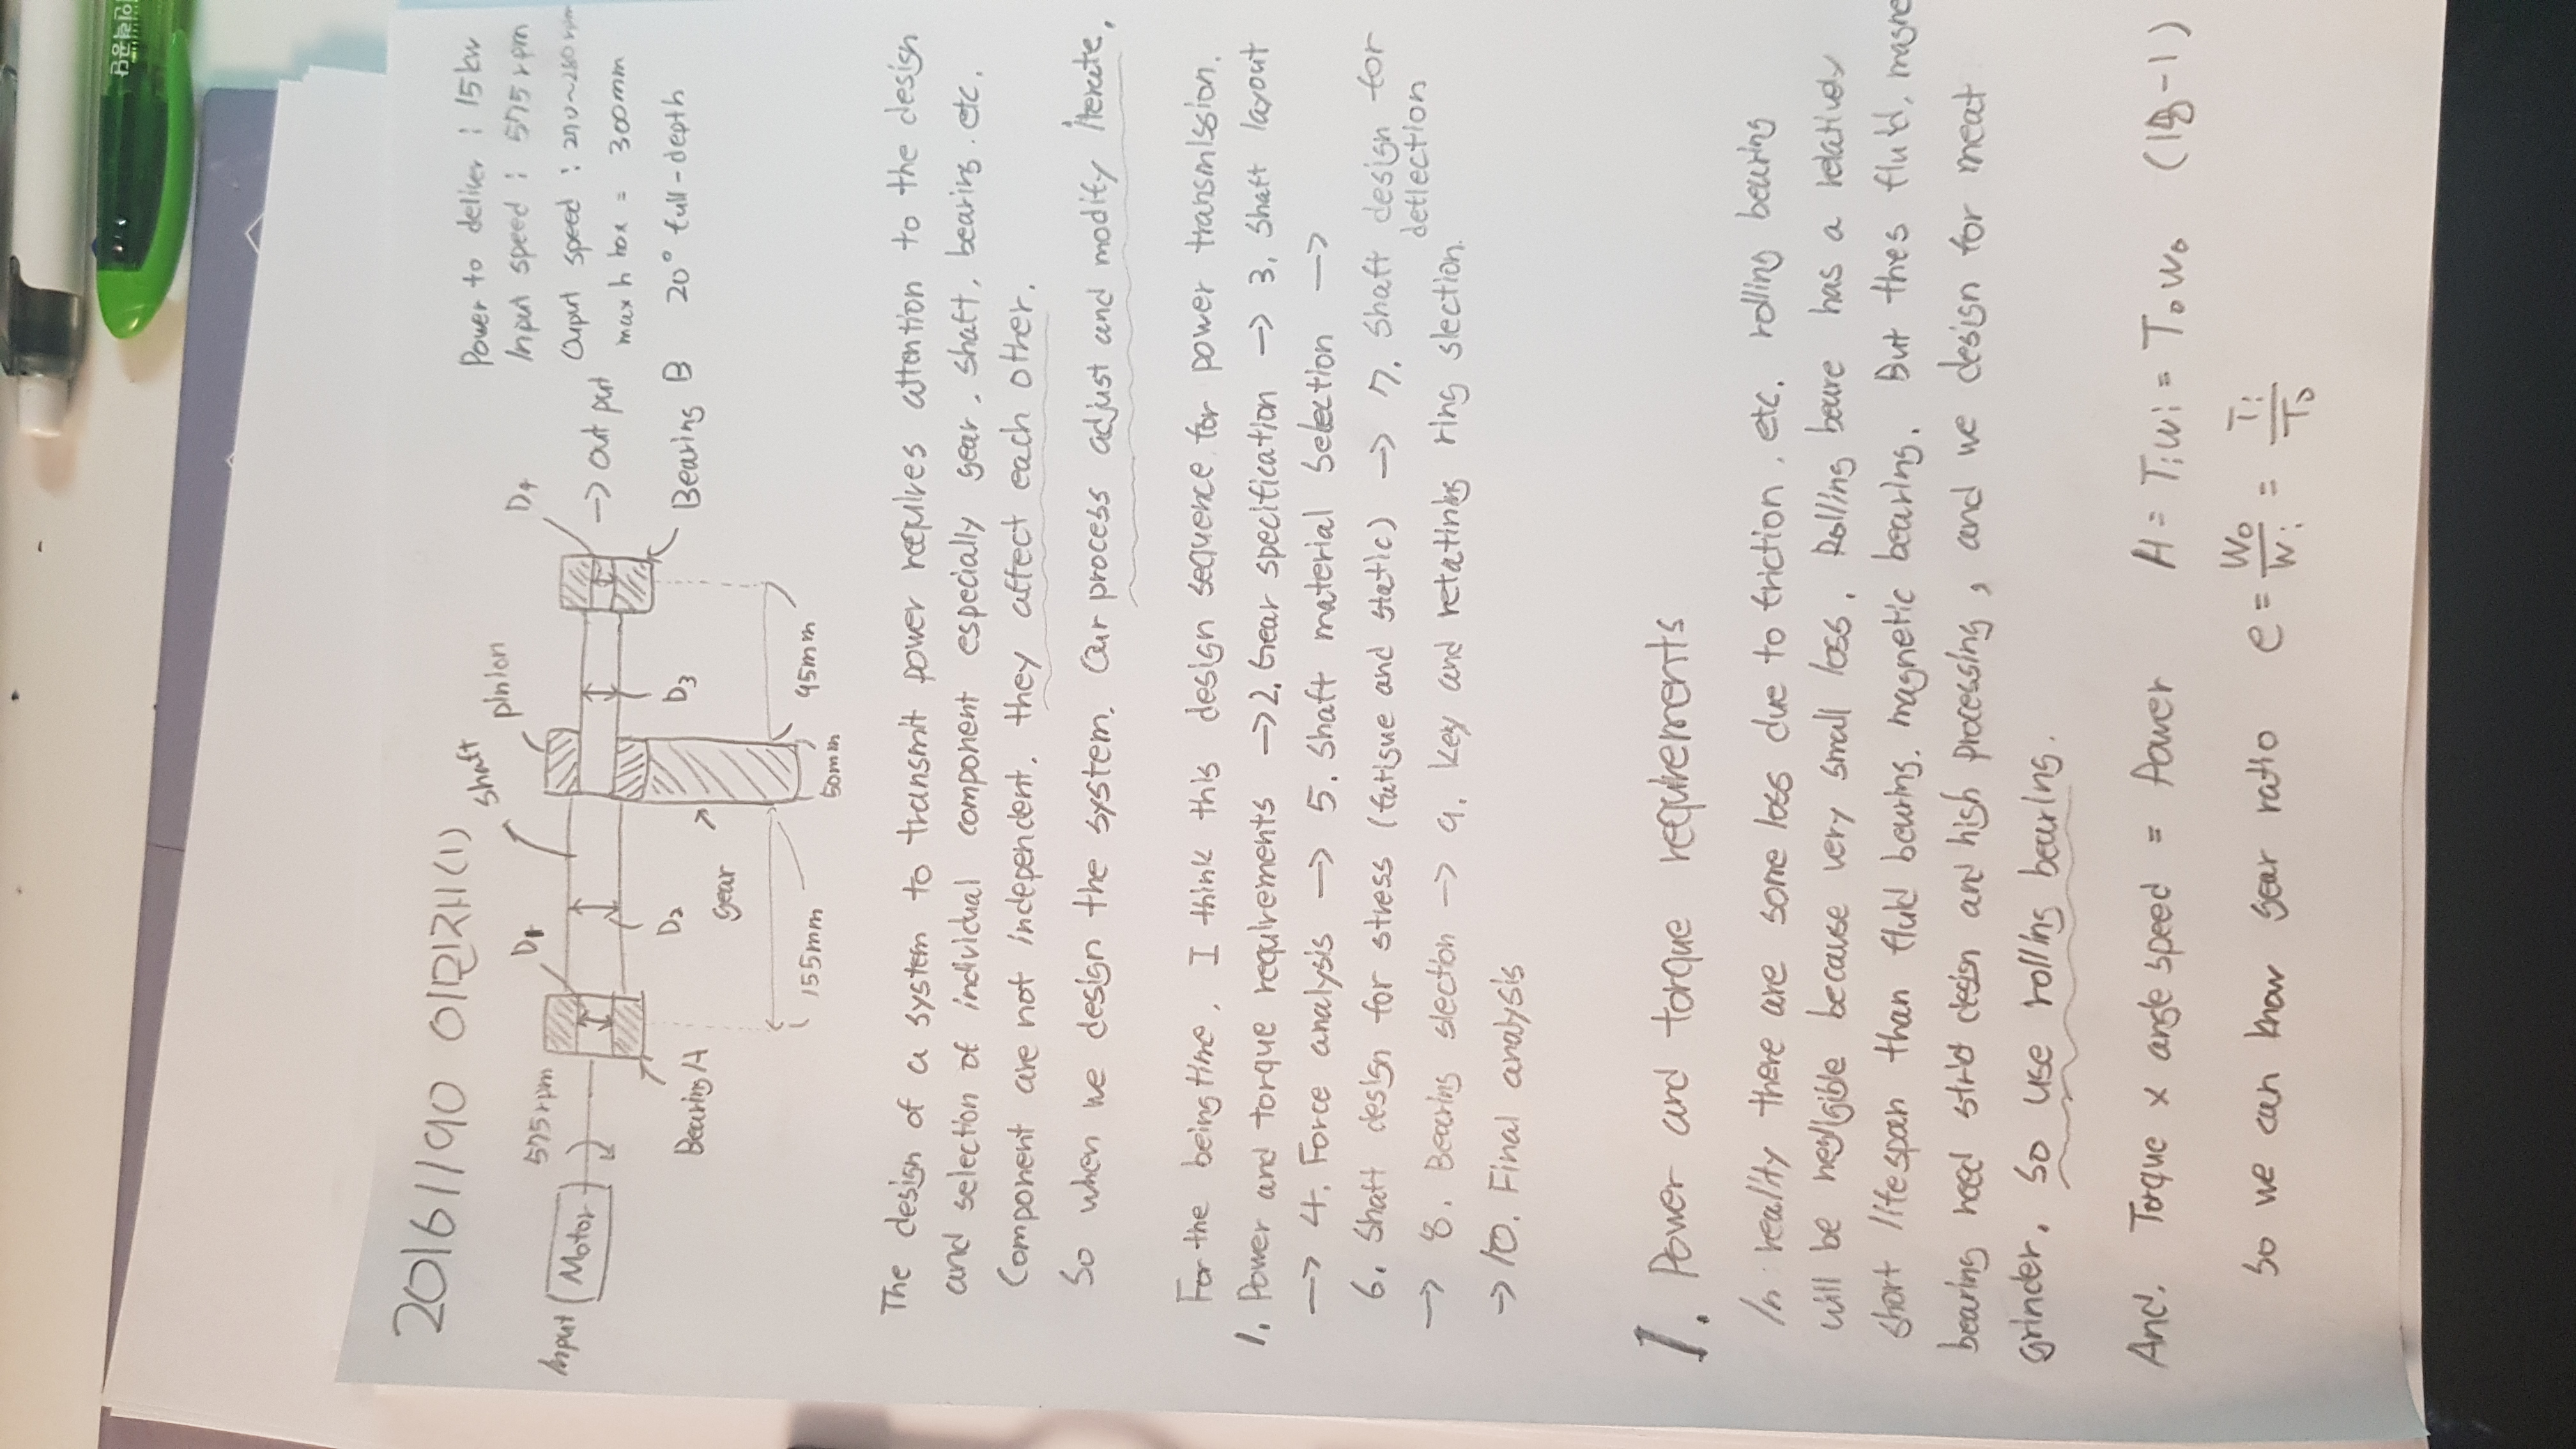 20161190 이민재(1)
shaft
pinion
Power to deliver : 15kw
575rpm
D1
D4
Input speed : 575rpm
Input Motor
Ouput speed : 270~280rpm
→ out put
max h box = 300mm
Bearing A
D2
D3
Bearing B 20° full-depth
gear
155mm
50mm
95mm
The design of a system to transmit power requires attention to the design
and selection of individual component especially gear, shaft, bearing. etc.
Component are not independent. they affect each other.
So when we design the system. Our process adjust and modify iterate.
For the being time, I think this design sequence for power transmission.
1. Power and torque requirements → 2. Gear specification → 3. Shaft layout
→ 4. Force analysis → 5. Shaft material Selection →
6. Shaft design for stress (fatigue and static) → 7. Shaft design for
deflection
→ 8. Bearing slection → 9. key and retatining ring slection.
→ 10. Final analysis
1. Power and torque requirements
In reality there are some loss due to friction, etc. rolling bearing
will be negligible because very small loss. Rolling beare has a relatively
short lifespan than fluid bearing, magnetic bearing. But thes fluid, magne
bearing need strict design and high processing, and we design for meat
grinder. So use rolling bearing.
And. Torque x angle speed = Power H = Tiwi = Towo (18-1)
So we can know gear ratio e = Wo/Wi = Ti/To